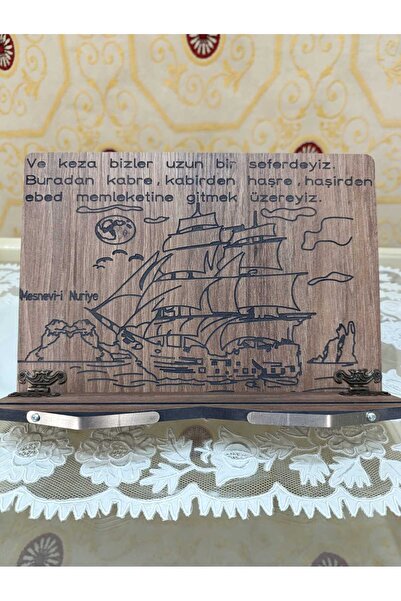 Ve keza bizler uzun bir seferdeyiz.
Buradan kabre, kabirden haşre, haşirden
ebed memleketine gitmek üzereyiz.
Mesnevi-i Nuriye